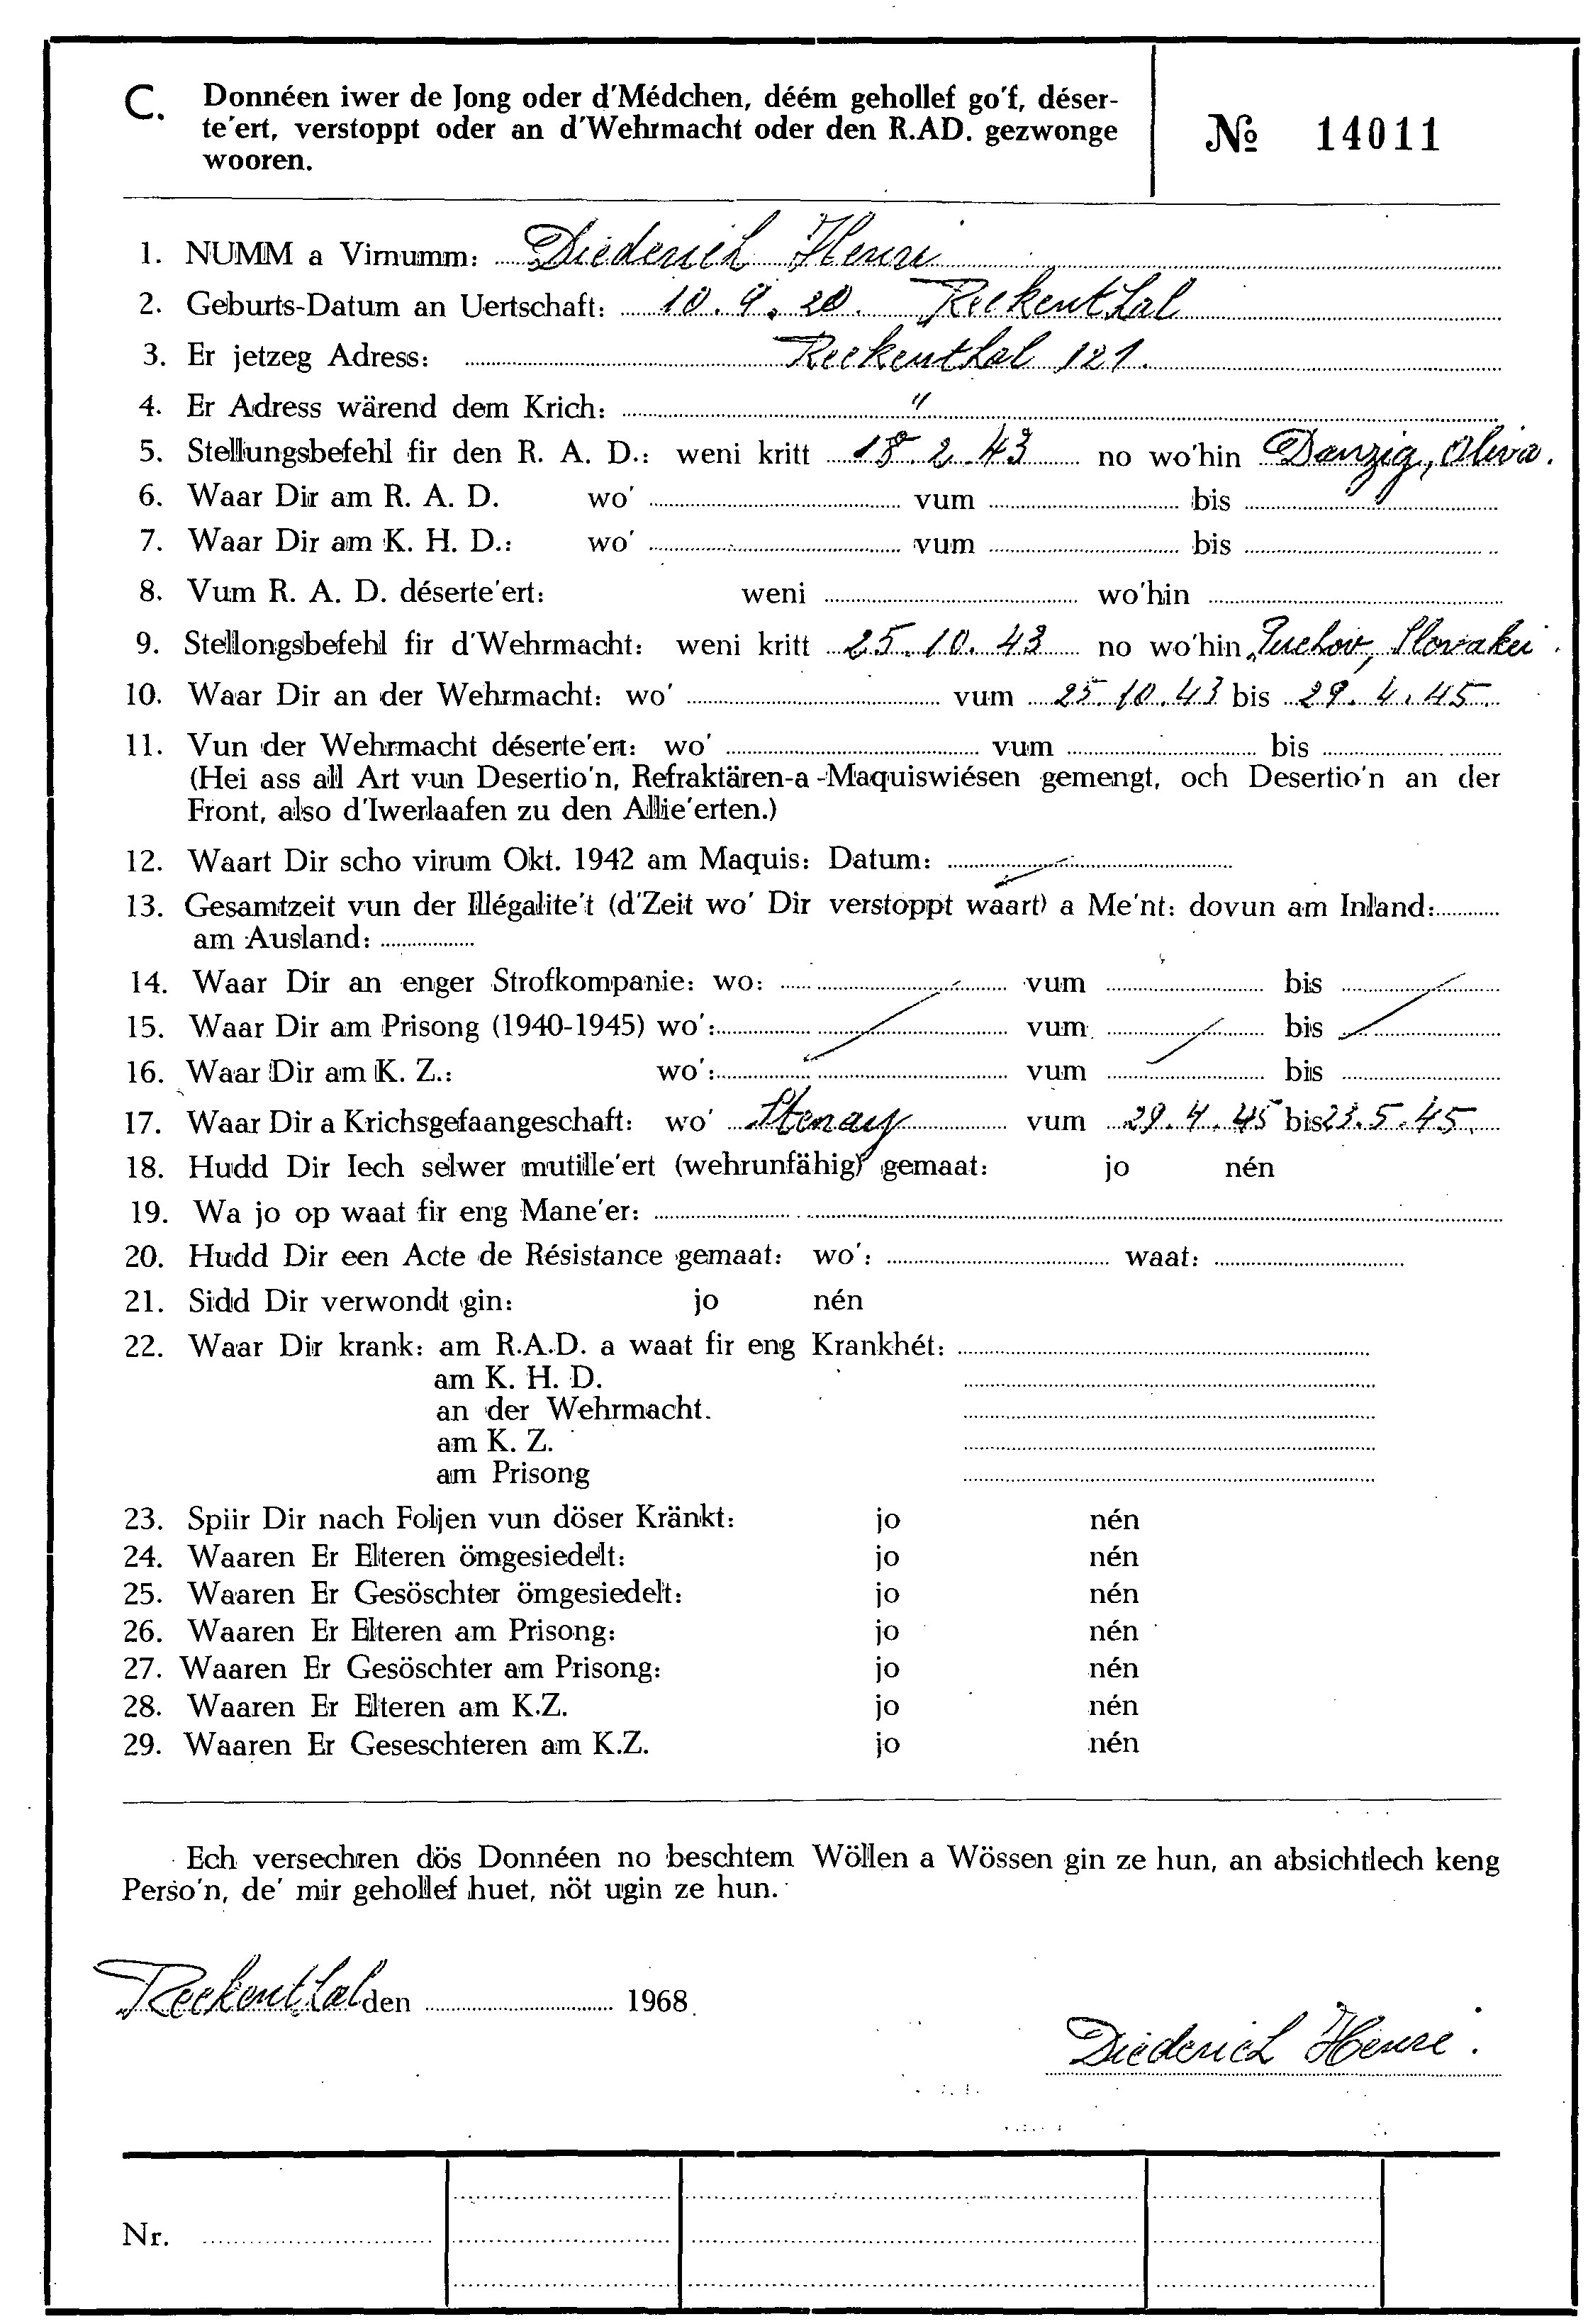 C. Donnéen iwer de Jong oder d'Médchen, déém gehollef go'f, déser-
te'ert, verstoppt oder an d'Wehrmacht oder den R.AD. gezwonge
wooren.
№ 14011
1. NUMM a Virnumm: Diederich Henri
2. Geburts-Datum an Uertschaft: 10.9.20. Reckenthal
3. Er jetzeg Adress: Reckenthal 121.
4. Er Adress wärend dem Krich: "
5. Stellungsbefehl fir den R. A. D.: weni kritt 18.2.43 no wo'hin Danzig, Oliva.
6. Waar Dir am R. A. D. wo' vum bis
7. Waar Dir am K. H. D.: wo' vum bis
8. Vum R. A. D. déserte'ert: weni wo'hin
9. Stellongsbefehl fir d'Wehrmacht: weni kritt 25.10.43 no wo'hin Puchow, Slovakei.
10. Waar Dir an der Wehrmacht: wo' vum 25.10.43 bis 29.4.45.
11. Vun der Wehrmacht déserte'ert: wo' vum bis
(Hei ass all Art vun Desertio'n, Refraktären-a-Maquiswiésen gemengt, och Desertio'n an der
Front, also d'Iwerlaafen zu den Allie'erten.)
12. Waart Dir scho virum Okt. 1942 am Maquis: Datum:
13. Gesamtzeit vun der Illégalite't (d'Zeit wo' Dir verstoppt waart) a Me'nt: dovun am Inland:
am Ausland:
14. Waar Dir an enger Strofkompanie: wo: vum bis
15. Waar Dir am Prisong (1940-1945) wo': vum bis
16. Waar Dir am K. Z.: wo': vum bis
17. Waar Dir a Krichsgefaangeschaft: wo' Stenay vum 29.4.45 bis 23.5.45.
18. Hudd Dir Iech selwer mutille'ert (wehrunfähig) gemaat: jo nén
19. Wa jo op waat fir eng Mane'er:
20. Hudd Dir een Acte de Résistance gemaat: wo': waat:
21. Sidd Dir verwondt gin: jo nén
22. Waar Dir krank: am R.A.D. a waat fir eng Krankhét:
am K. H. D.
an der Wehrmacht.
am K. Z.
am Prisong
23. Spiir Dir nach Foljen vun döser Kränkt: jo nén
24. Waaren Er Elteren ömgesiedelt: jo nén
25. Waaren Er Gesöschter ömgesiedelt: jo nén
26. Waaren Er Elteren am Prisong: jo nén
27. Waaren Er Gesöschter am Prisong: jo nén
28. Waaren Er Elteren am K.Z. jo nén
29. Waaren Er Geseschteren am K.Z. jo nén
Ech versechren dös Donnéen no beschtem Wöllen a Wössen gin ze hun, an absichtlech keng
Perso'n, de' mir gehollef huet, nöt ugin ze hun.
Reckenthal den 1968
Diederich Henri.
Nr.